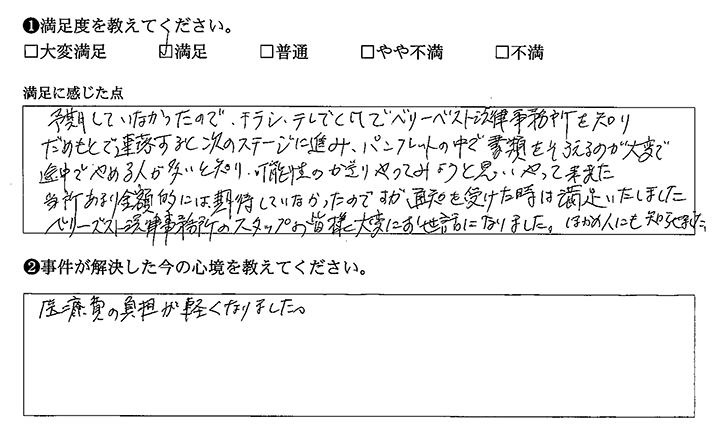 ❶満足度を教えてください。
□大変満足 ☑満足 □普通 □やや不満 □不満
満足に感じた点
予期していなかったので、チラシ、テレビとCMでベリーベスト法律事務所を知り
だめもとで連絡すると次のステージに進み、パンフレットの中で書類をそろえるのが大変で
途中でやめる人が多いと知り、可能性のかぎりやってみようと思いやって来ました
当所あまり金額的には期待していなかったのですが通知を受けた時は満足いたしました
ベリーベスト法律事務所のスタッフお皆様大変にお世話になりました。ほかの人にも知らせました
❷事件が解決した今の心境を教えてください。
医療負の負担が軽くなりました。